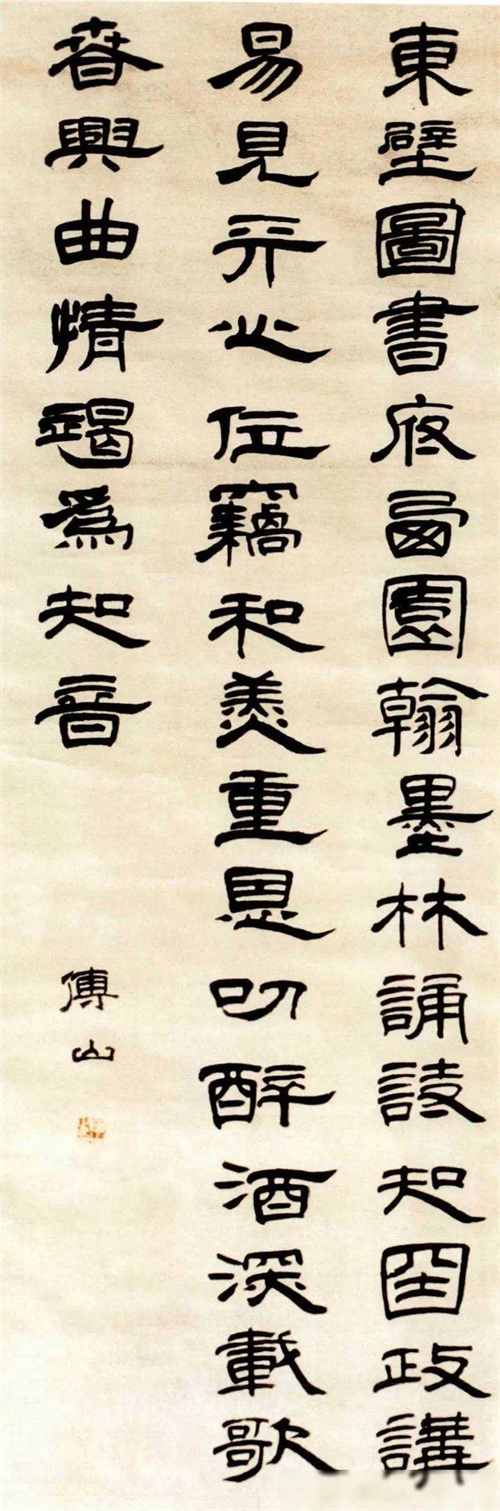 東壁圖書府西園翰墨林誦詩知國政講
易見天心位竊和羹重恩叨醉酒深載歌
春興曲情竭爲知音
傅山